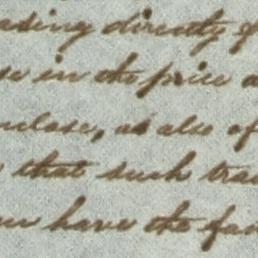 ading directly
in the price
nclose, as also of
that such tra
have the